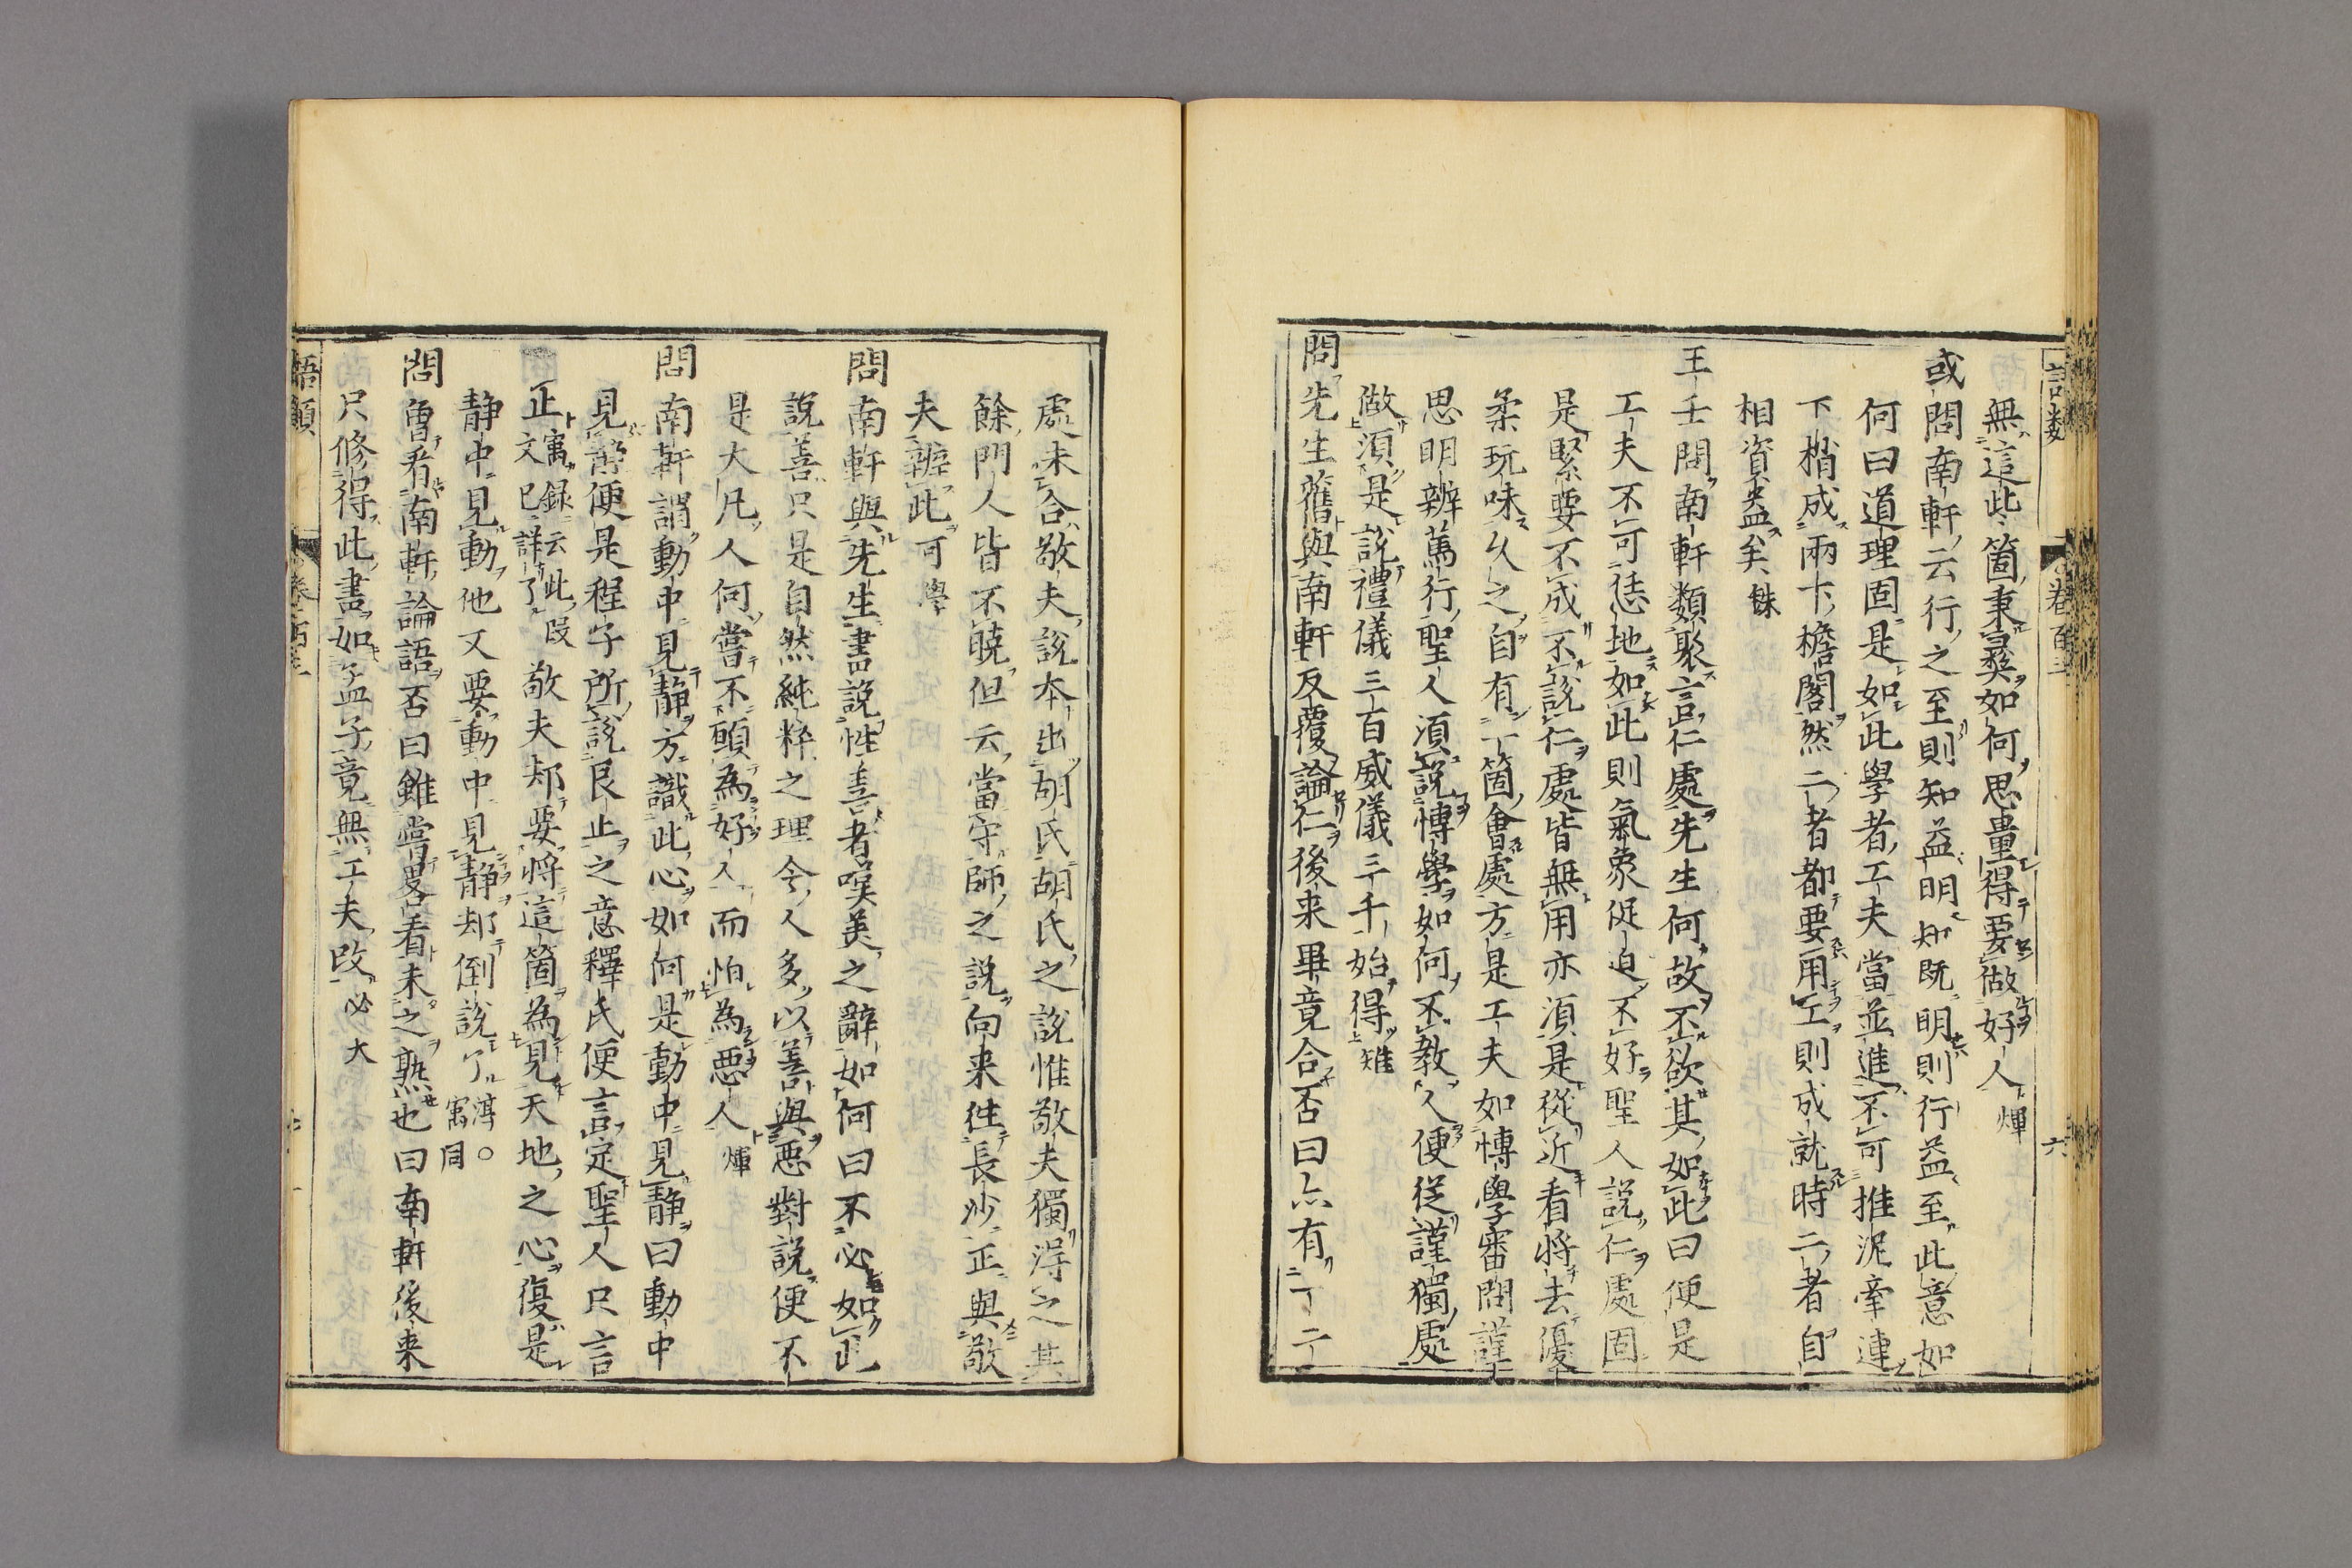 無這此箇秉彛如何思量得要做好人煇
或問南軒云行之至則知益明知既明則行益至此意如
何曰道理固是如此學者工夫當並進不可推泥牽連
下梢成兩下檐閣然二者都要用工則成就時二者自
相資益矣銖
王壬問南軒類聚言仁處先生何故不欲其如此曰便是
工夫不可恁地如此則氣象促迫不好聖人說仁處固
是緊要不成不說仁處皆無用亦須是從近看將去優
柔玩味久之自有一箇會處方是工夫如博學審問謹
思明辨篤行聖人須說博學如何不教人便從謹獨處
做須是說禮儀三百威儀三千始得雉
問先生舊與南軒反覆論仁後来畢竟合否曰亦有一二
處未合敬夫說本出胡氏胡氏之說惟敬夫獨得之其
餘門人皆不曉但云當守師之說向来徃長沙正與敬
夫辨此可學
問南軒與先生書說性善者嘆美之辭如何曰不必如此
說善只是自然純粹之理今人多以善與惡對說便不
是大凡人何嘗不願為好人而怕為惡人煇
問南軒謂動中見靜方識此心如何是動中見靜曰動中
見靜便是程子所說艮止之意釋氏便言定聖人只言
止寓録云此段文已詳了敬夫却要將這箇為見天地之心復是
静中見動他又要動中見静却倒說了淳○寓同
問曽看南軒論語否曰雖嘗畧看未之熟也曰南軒後来
只修得此書如孟子竟無工夫改必大
語類
卷百三
六